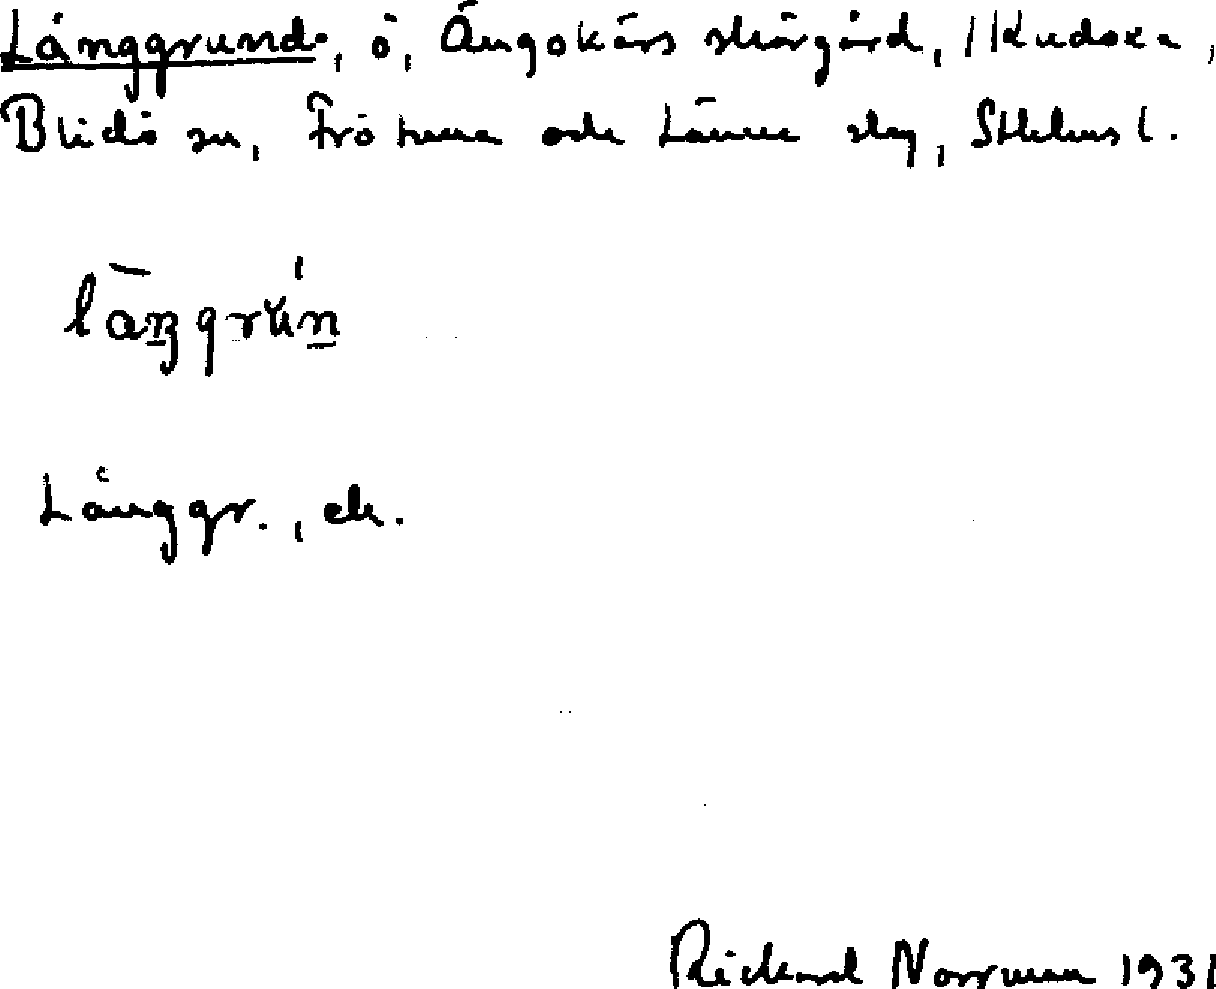 Långgrund, ö, Ängskärs skärgård,
Blidö sn, Frötuna och Länna skg, Sthlms l.
Långgr., ek.
Rickard Norrman 1931